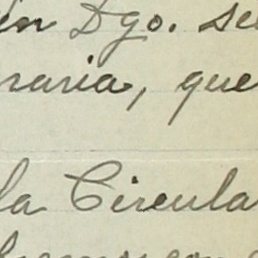 en Dgo. se
raria, que
la Circula